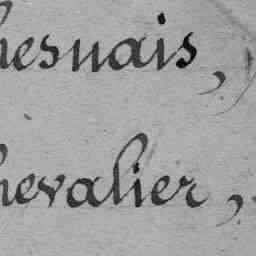 hesnais,
hevalier,